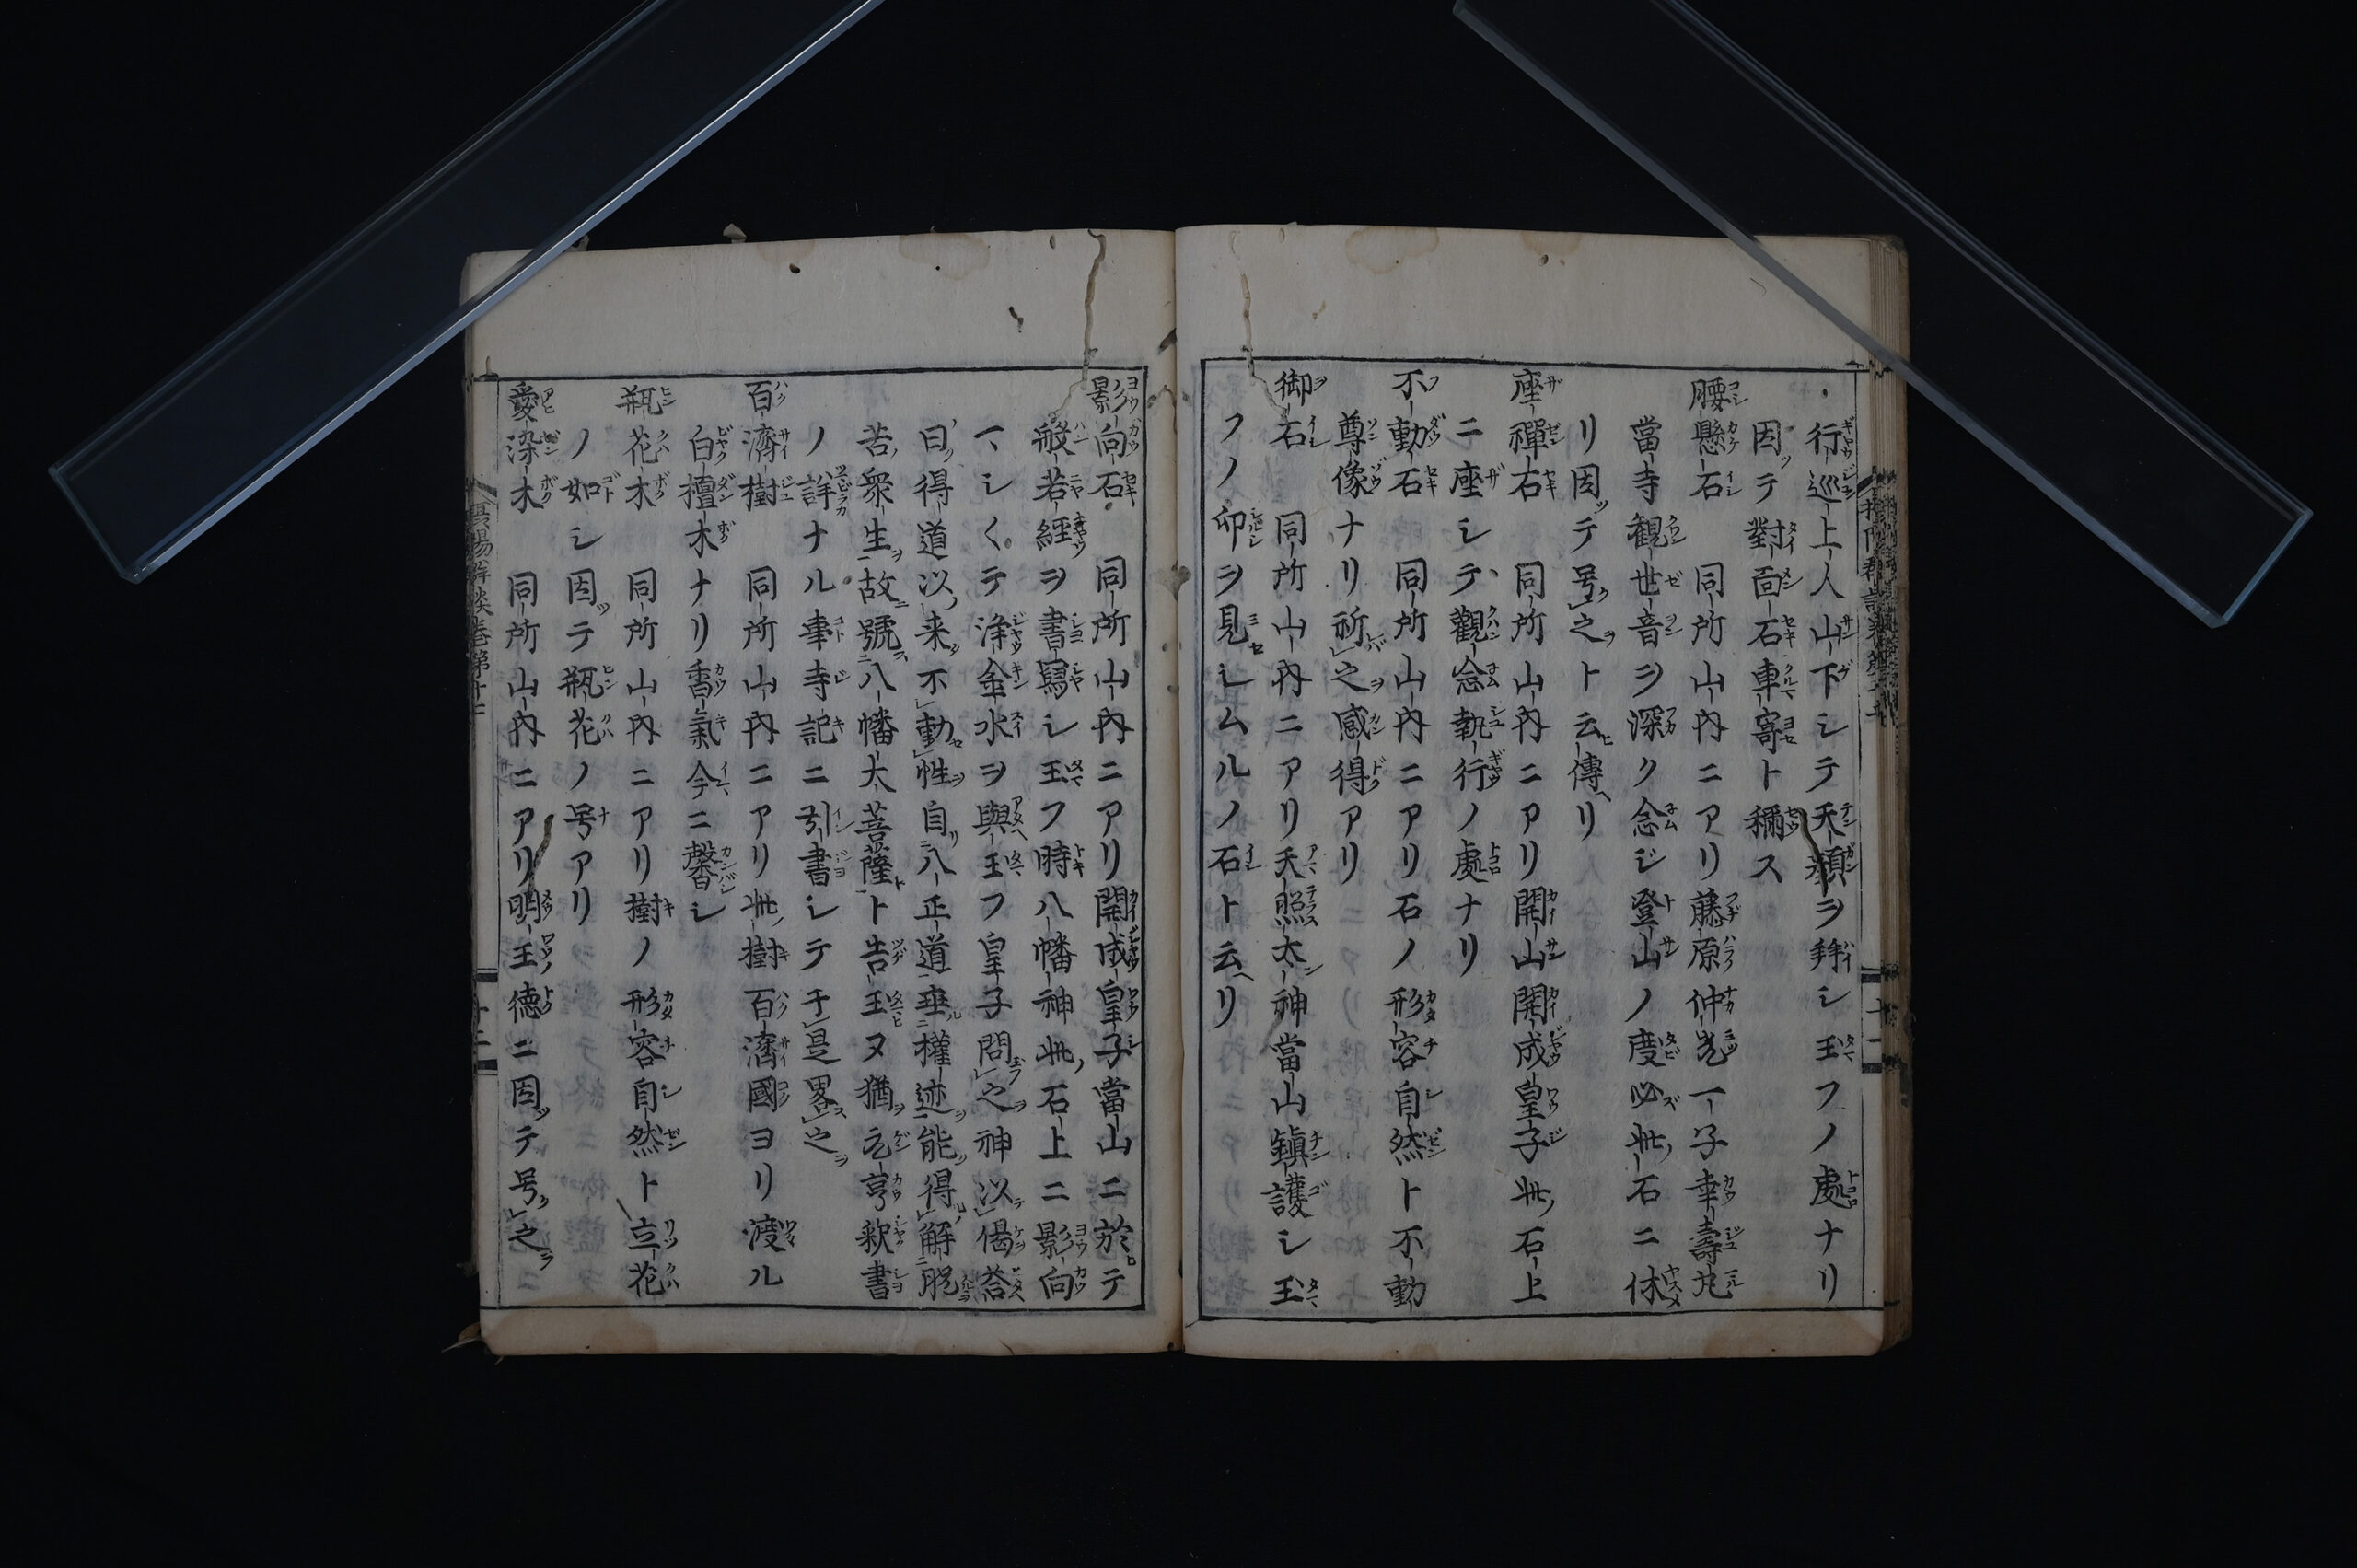 行巡上人山下シテ天顔ヲ拜シ玉フノ處ナリ
因テ對面石車寄ト稱ス
腰懸石 同所山内ニアリ藤原仲光一子幸壽丸
當寺観世音ヲ深ク念ジ登山ノ度必此石ニ休
リ因テ号之ト云傳リ
座禪石 同所山内ニアリ開山開成皇子此石上
ニ座シテ觀念執行ノ處ナリ
不動石 同所山内ニアリ石ノ形容自然ト不動
尊像ナリ祈之感得アリ
御石 同所山内ニアリ天照太神當山鎭護シ玉
フノ印ヲ見シムルノ石ト云リ
影向石 同所山内ニアリ開成皇子當山ニ於テ
般若経ヲ書寫シ玉フ時八幡神此石上ニ影向
マシ〱テ浄金水ヲ與玉フ皇子問之神以偈荅
曰得道以来不動性自八正道垂權迹能得解脱
苦衆生故號八幡大菩薩ト告玉ヌ猶元亨釈書
ノ詳ナル事寺記ニ引書シテ于是畧之
百濟樹 同所山内ニアリ此樹百濟國ヨリ渡ル
白檀木ナリ香氣今ニ馨シ
瓶花木 同所山内ニアリ樹ノ形容自然ト立花
ノ如シ因テ瓶花ノ号アリ
愛染木 同所山内ニアリ明王德ニ因テ号之